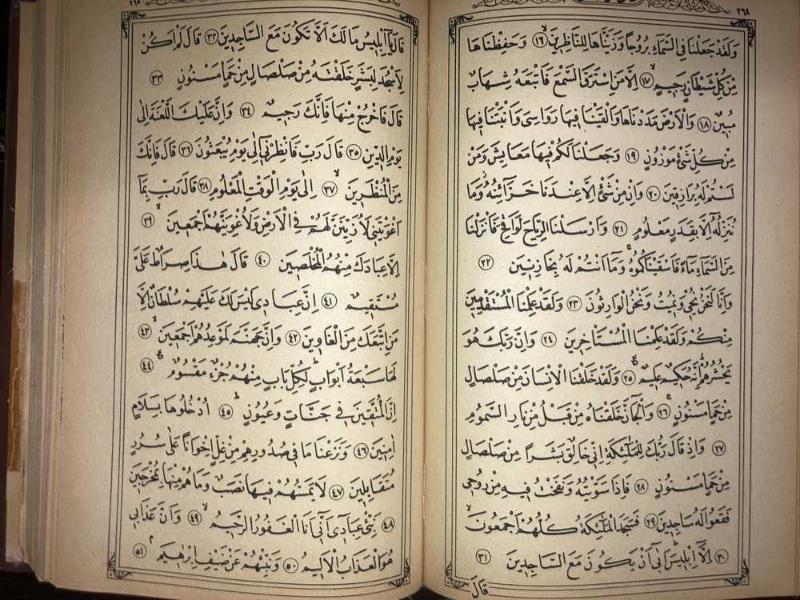 ٢٦٤
وَلَقَدْ جَعَلْنَا فِى السَّمَٓاءِ بُرُوجًا وَزَيَّنَّاهَا لِلنَّاظِرِينَۙ ﴿١٦﴾ وَحَفِظْنَاهَا
مِنْ كُلِّ شَيْطَانٍ رَجِيمٍۙ ﴿١٧﴾ اِلَّا مَنِ اسْتَرَقَ السَّمْعَ فَاَتْبَعَهُ شِهَابٌ
مُبِينٌ ﴿١٨﴾ وَالْاَرْضَ مَدَدْنَاهَا وَاَلْقَيْنَا فِيهَا رَوَاسِىَ وَاَنْبَتْنَا فِيهَا
مِنْ كُلِّ شَىْءٍ مَوْزُونٍ ﴿١٩﴾ وَجَعَلْنَا لَكُمْ فِيهَا مَعَايِشَ وَمَنْ
لَسْتُمْ لَهُ بِرَازِقِينَ ﴿٢٠﴾ وَاِنْ مِنْ شَىْءٍ اِلَّا عِنْدَنَا خَزَٓائِنُهُ وَمَا
نُنَزِّلُهُٓ اِلَّا بِقَدَرٍ مَعْلُومٍ ﴿٢١﴾ وَاَرْسَلْنَا الرِّيَاحَ لَوَاقِحَ فَاَنْزَلْنَا
مِنَ السَّمَٓاءِ مَٓاءً فَاَسْقَيْنَاكُمُوهُ وَمَٓا اَنْتُمْ لَهُ بِخَازِنِينَ ﴿٢٢﴾
وَاِنَّا لَنَحْنُ نُحْيِى وَنُمِيتُ وَنَحْنُ الْوَارِثُونَ ﴿٢٣﴾ وَلَقَدْ عَلِمْنَا الْمُسْتَقْدِمِينَ
مِنْكُمْ وَلَقَدْ عَلِمْنَا الْمُسْتَأْخِرِينَ ﴿٢٤﴾ وَاِنَّ رَبَّكَ هُوَ
يَحْشُرُهُمْ اِنَّهُ حَكِيمٌ عَلِيمٌ ﴿٢٥﴾ وَلَقَدْ خَلَقْنَا الْاِنْسَانَ مِنْ صَلْصَالٍ
مِنْ حَمَاٍ مَسْنُونٍ ﴿٢٦﴾ وَالْجَٓانَّ خَلَقْنَاهُ مِنْ قَبْلُ مِنْ نَارِ السَّمُومِ
﴿٢٧﴾ وَاِذْ قَالَ رَبُّكَ لِلْمَلٰٓئِكَةِ اِنِّى خَالِقٌ بَشَرًا مِنْ صَلْصَالٍ
مِنْ حَمَاٍ مَسْنُونٍ ﴿٢٨﴾ فَاِذَا سَوَّيْتُهُ وَنَفَخْتُ فِيهِ مِنْ رُوحِى
فَقَعُوا لَهُ سَاجِدِينَ ﴿٢٩﴾ فَسَجَدَ الْمَلٰٓئِكَةُ كُلُّهُمْ اَجْمَعُونَۙ
﴿٣٠﴾ اِلَّٓا اِبْلِيسَ اَبٰٓى اَنْ يَكُونَ مَعَ السَّاجِدِينَ ﴿٣١﴾
قَالَ
قَالَ يَٓا اِبْلِيسُ مَا لَكَ اَلَّا تَكُونَ مَعَ السَّاجِدِينَ ﴿٣٢﴾ قَالَ لَمْ اَكُنْ
لِاَسْجُدَ لِبَشَرٍ خَلَقْتَهُ مِنْ صَلْصَالٍ مِنْ حَمَاٍ مَسْنُونٍ ﴿٣٣﴾
قَالَ فَاخْرُجْ مِنْهَا فَاِنَّكَ رَجِيمٌ ﴿٣٤﴾ وَاِنَّ عَلَيْكَ اللَّعْنَةَ اِلٰى
يَوْمِ الدِّينِ ﴿٣٥﴾ قَالَ رَبِّ فَاَنْظِرْنِى اِلٰى يَوْمِ يُبْعَثُونَ ﴿٣٦﴾ قَالَ فَاِنَّكَ
مِنَ الْمُنْظَرِينَۙ ﴿٣٧﴾ اِلٰى يَوْمِ الْوَقْتِ الْمَعْلُومِ ﴿٣٨﴾ قَالَ رَبِّ بِمَٓا
اَغْوَيْتَنِى لَاُزَيِّنَنَّ لَهُمْ فِى الْاَرْضِ وَلَاُغْوِيَنَّهُمْ اَجْمَعِينَۙ ﴿٣٩﴾
اِلَّا عِبَادَكَ مِنْهُمُ الْمُخْلَصِينَ ﴿٤٠﴾ قَالَ هٰذَا صِرَاطٌ عَلَىَّ
مُسْتَقِيمٌ ﴿٤١﴾ اِنَّ عِبَادِى لَيْسَ لَكَ عَلَيْهِمْ سُلْطَانٌ اِلَّا
مَنِ اتَّبَعَكَ مِنَ الْغَاوِينَ ﴿٤٢﴾ وَاِنَّ جَهَنَّمَ لَمَوْعِدُهُمْ اَجْمَعِينَۙ ﴿٤٣﴾
لَهَا سَبْعَةُ اَبْوَابٍ لِكُلِّ بَابٍ مِنْهُمْ جُزْءٌ مَقْسُومٌ ﴿٤٤﴾
اِنَّ الْمُتَّقِينَ فِى جَنَّاتٍ وَعُيُونٍ ﴿٤٥﴾ اُدْخُلُوهَا بِسَلَامٍ
اٰمِنِينَ ﴿٤٦﴾ وَنَزَعْنَا مَا فِى صُدُورِهِمْ مِنْ غِلٍّ اِخْوَانًا عَلٰى سُرُرٍ
مُتَقَابِلِينَ ﴿٤٧﴾ لَا يَمَسُّهُمْ فِيهَا نَصَبٌ وَمَا هُمْ مِنْهَا بِمُخْرَجِينَ
﴿٤٨﴾ نَبِّئْ عِبَادِٓى اَنِّٓى اَنَا الْغَفُورُ الرَّحِيمُۙ ﴿٤٩﴾ وَاَنَّ عَذَابِى
هُوَ الْعَذَابُ الْاَلِيمُ ﴿٥٠﴾ وَنَبِّئْهُمْ عَنْ ضَيْفِ اِبْرٰهِيمَ ﴿٥١﴾